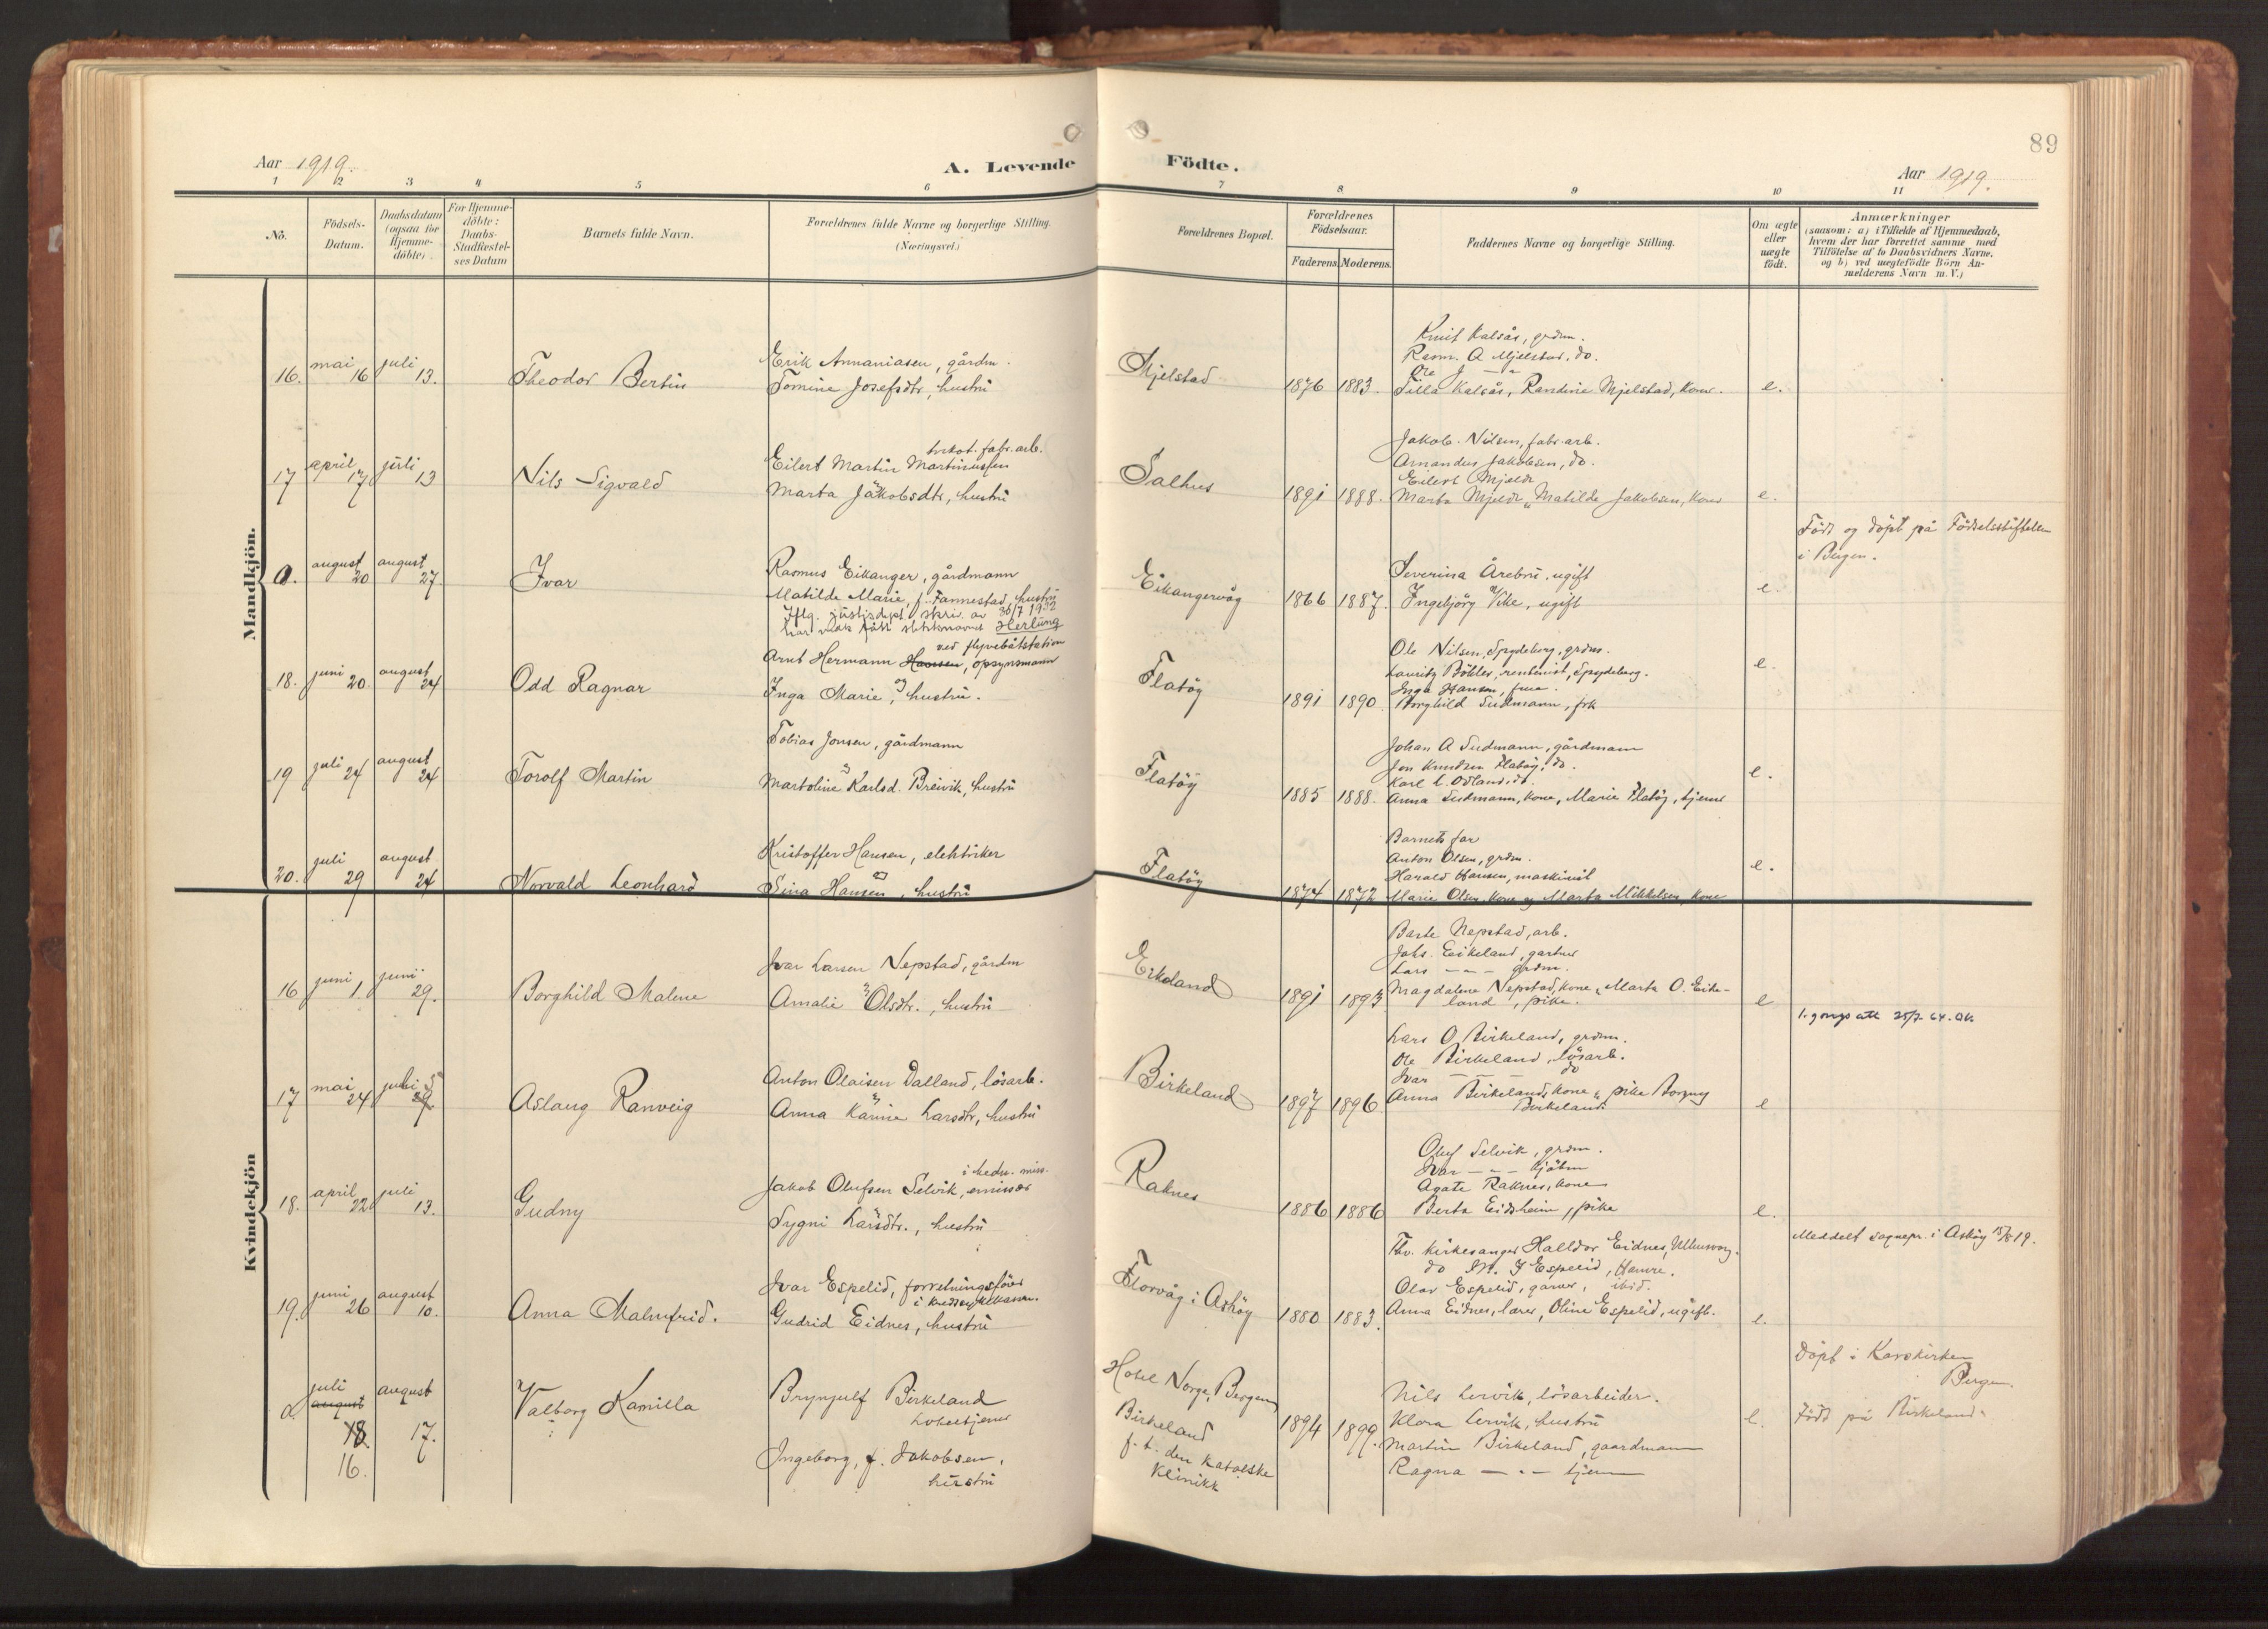 89
Aar 1919.
A. Levende Födte.
Aar 1919.
1 2 3 4 5 6 7 8 9 10 11
No.
Födsels-
Datum.
Daabsdatum
(ogsaa for
Hjemme-
döbte)
For Hjemme-
döbte:
Daabs-
Stadfæstel-
ses Datum
Barnets fulde Navn.
Forældrenes fulde Navne og borgerlige Stilling.
(Næringsvei.)
Forældrenes Bopæl.
Forældrenes
Födselsaar.
Faderens. Moderens.
Faddernes Navne og borgerlige Stilling.
Om ægte
eller
uægte
födt.
Anmærkninger
(saasom: a) i Tilfælde af Hjemmedaab,
hvem der har forrettet samme med
Tilföielse af to Daabsvidners Navne.
og b) ved uægtefödte Börn An-
melderens Navn m. V.)
Mandkjön.
16. mai 16 juli 13.
Theodor Bertin
Erik Annaniasen, gårdm.
Tomine Josefsdtr, hustru
Mjelstad
1876 1883.
Knut Kalsås, grdm.
Rasm. A Mjelstad, do.
Ole J — " —
Silla Kalsås, Randine Mjelstad, koner.
e.
17 april 17 juli 13
Nils Sigvald
trikot. fabr. arb.
Eilert Martin Martinussen
Marta Jakobsdtr, hustru
Salhus
1891 1888.
Jakob Nilsen, fabr. arb.
Arnandus Jakobsen, do.
Eilert Mjelde
Marta Mjelde, Matilde Jakobsen, kone
e.
0. august 20 august 27.
Ivar
Rasmus Eikanger, gårdmann
Matilde Marie, f. Fannestad, hustru
Eikangervåg
1866 1887.
Severina Årebru, ugift
Ingebjörg Vike, ugift
e.
Födt og döpt på Födselsstiftelsen
i Bergen.
Iflg. justisdept. skriv. av 30/7 1932
har fått slektsnavnet Herlung
18. juni 20. august 24
Odd Ragnar
ved flyvebåtstation
Arnt Hermann Hansen, opsynsmann
og
Inga Marie, hustru.
Flatöy
1891 1890.
Ole Nilsen, Spydeberg, grdm.
Lauritz Böhler, rentenist, Spydeberg.
Inga Hansen, frue.
Borghild Sudmann, frk
e.
19 juli 24 august 24
Torolf Martin
Tobias Jonsen, gårdmann
Martoline Karlsd. Breivik, hustru
Flatöy
1885 1888.
Johan A Sudmann, gårdmann
Jon Knudsen Flatöy, do.
Karl L. Odland, do.
Anna Sudmann, kone, Marie Flatöy, tjener
e.
20. juli 29 august 24
Norvald Leonhard
Kristoffer Hansen, elektriker
Sina Hansen, hustru
Flatöy
1874 1872
Barnets far
Anton Olsen, grdm.
Harald Hansen, maskinist
Marie Olsen, kone og Marta Mikkelsen, kone
e.
Kvindekjön
16 juni 1. juni 29.
Borghild Malene
Ivar Larsen Nepstad, gårdm
Amalie Olsdtr., hustru
Eikeland
1891 1893
Barte Nepstad, arb.
Johs. Eikeland, gartner
Lars — " — grdm.
Magdalene Nepstad, kone, Marta O. Eike-
land, pike.
e
17 mai 24 juli
Aslaug Ranveig
Anton Olaisen Dalland, lösarb.
Anna Karine Larsdtr, hustru
Birkeland
1897 1896
Lars O Birkeland, grdm.
Ole Birkeland, lösarb.
Ivar — — — do
Anna Birkeland, kone, pike Borgny
Birkeland.
e
18. april 22 juli 13.
Gudny
i hedn. miss.
Jakob Olufsen Selvik, emissær
Sygni Larsdtr., hustru
Raknes
1886 1886
Oluf Selvik, grdm.
Ivar — " — kjöbm
Agate Raknes, kone
Berta Eidsheim, pike
e.
19. juni 26 august 10.
Anna Malmfrid.
Ivar Espelid, forretningsförer
i kredssykekassen.
Gudrid Eidnes, hustru
Florvåg i Asköy
1880 1883.
Thv. kirkesanger Halldor Eidnes,
do M. J Espelid, Hamre.
Olav Espelid, garver, ibid.
Anna Eidnes, lærer, Oline Espelid, ugift.
e.
Meddelt sognepr. i Asköy 15/8 19.
0. juli august 18. 16. august 17.
Valborg Kamilla
Brynjulf Birkeland
hoteltjener
Ingeborg, f. Jakobsen,
hustru
Hotel Norge, Bergen
Birkeland
f. t. den katolske
klinikk
1894 1899.
Nils Lervik, lösarbeider.
Klara Lervik, hustru
Martin Birkeland, gaardmann
Ragna — " — tjener
e.
Döpt i Korskirken
Bergen.
Födt på Birkeland.